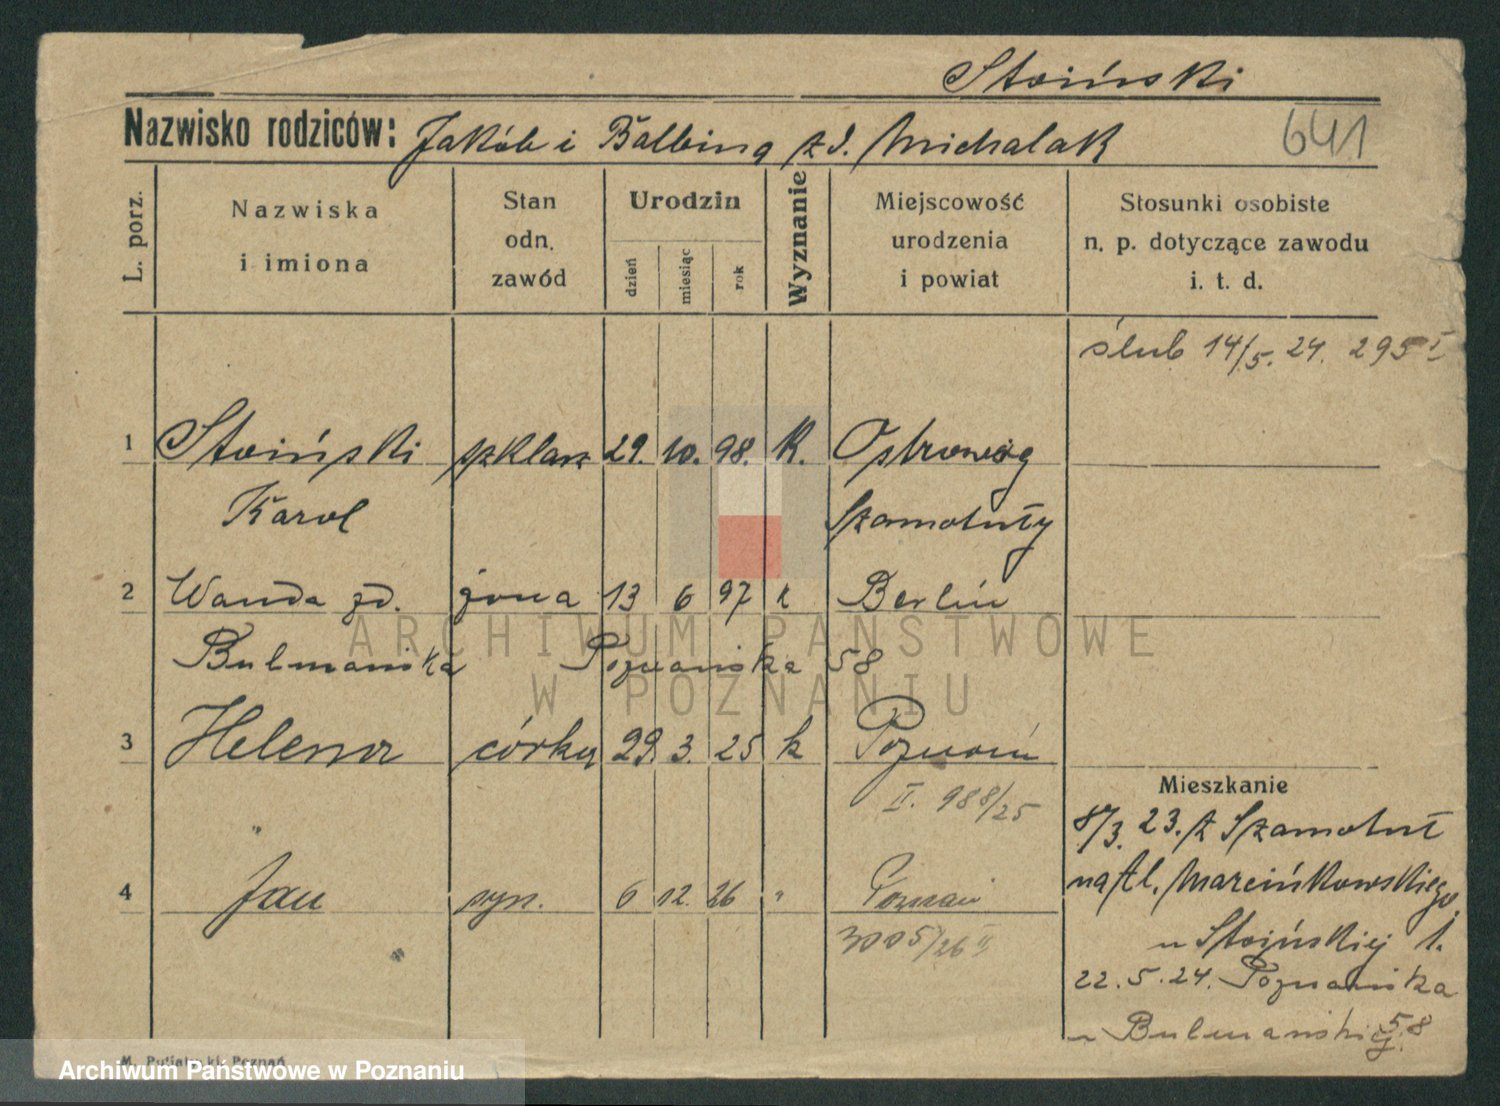 Stoiński
Nazwisko rodziców: Jakób i Balbina zd. Michalak
641
L. porz.
Nazwiska
i imiona
Stan
odn.
zawód
Urodzin
dzień
miesiąc
rok
Wyznanie
Miejscowość
urodzenia
i powiat
Stosunki osobiste
n. p. dotyczące zawodu
i. t. d.
ślub 14/5. 24. 295 I
1 Stoiński szklarz 29. 10. 98. K. Ostroróg
Karol Szamotuły
2 Wanda zd. żona 13 6 97 k Berlin
Bulmańska Poznańska 58
3 Helena córka 29. 3. 25 k Poznań
II. 988/25
4 Jan syn. 6 12. 26 " Poznań
3005/26 II
Mieszkanie
8/3. 23. z Szamotuł
na Al. Marcinkowskiego
u Stoińskiej 1.
22. 5. 24. Poznańska
u Bulmańskiej 58
M. Putiatycki, Poznań
ARCHIWUM PAŃSTWOWE
W POZNANIU
Archiwum Państwowe w Poznaniu